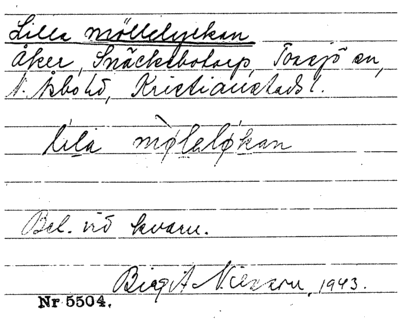 Lilla möllelyckan
Åker, Snäckebotorp, Torsjö sn,
N. Åsbo hd, Kristianstads l.
lila møleløkan
Bel. vid kvarn.
Birgit Nilsson, 1943.
Nr 5504.